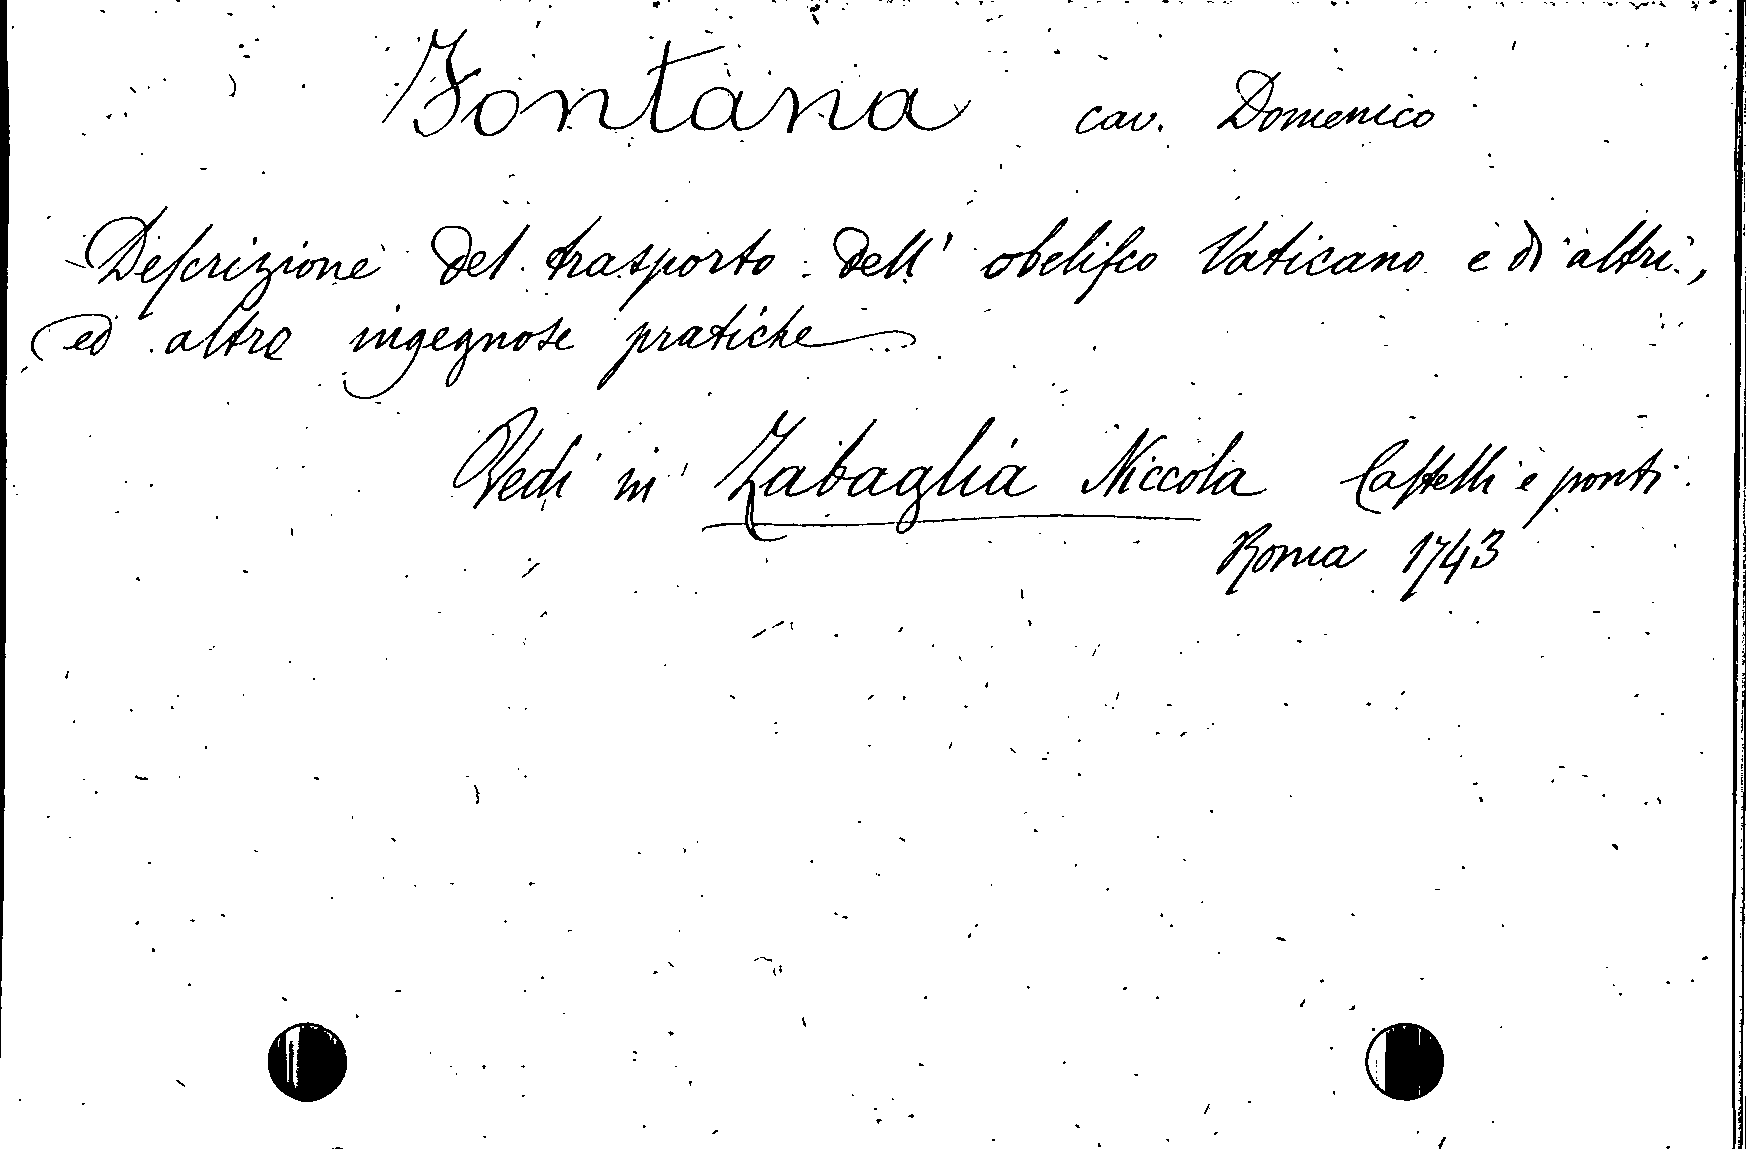 Fontana cav. Domenico
Deſcrizione del trasporto dell' obeliſco Vaticano e di altri,
ed altre ingegnose pratiche
Vedi in Zabaglia Niccola Caſtelli e ponti
Roma 1743